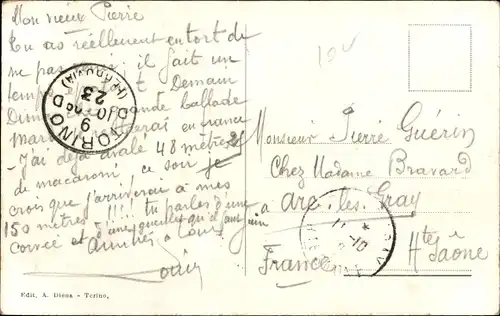 Mon vieux Pierre
Tu as réellement eu tort de
ne pas il fait un
temps Demain
Dimanche grande ballade
Mardi en france
- J'ai déjà avalé 48 mètres
de macaroni ce soir je
crois que j'arriverai à mes
150 mètres !!!! tu parles d'une
corvée et d'une gueule qu'il
Amitiés à tous
Louis
TORINO
(FERROVIA)
23
9
10
Monsieur Pierre Guérin
Chez Madame Bravard
à
Arc-les-Gray
Hte Saône
France
Edit. A. Diena - Torino.